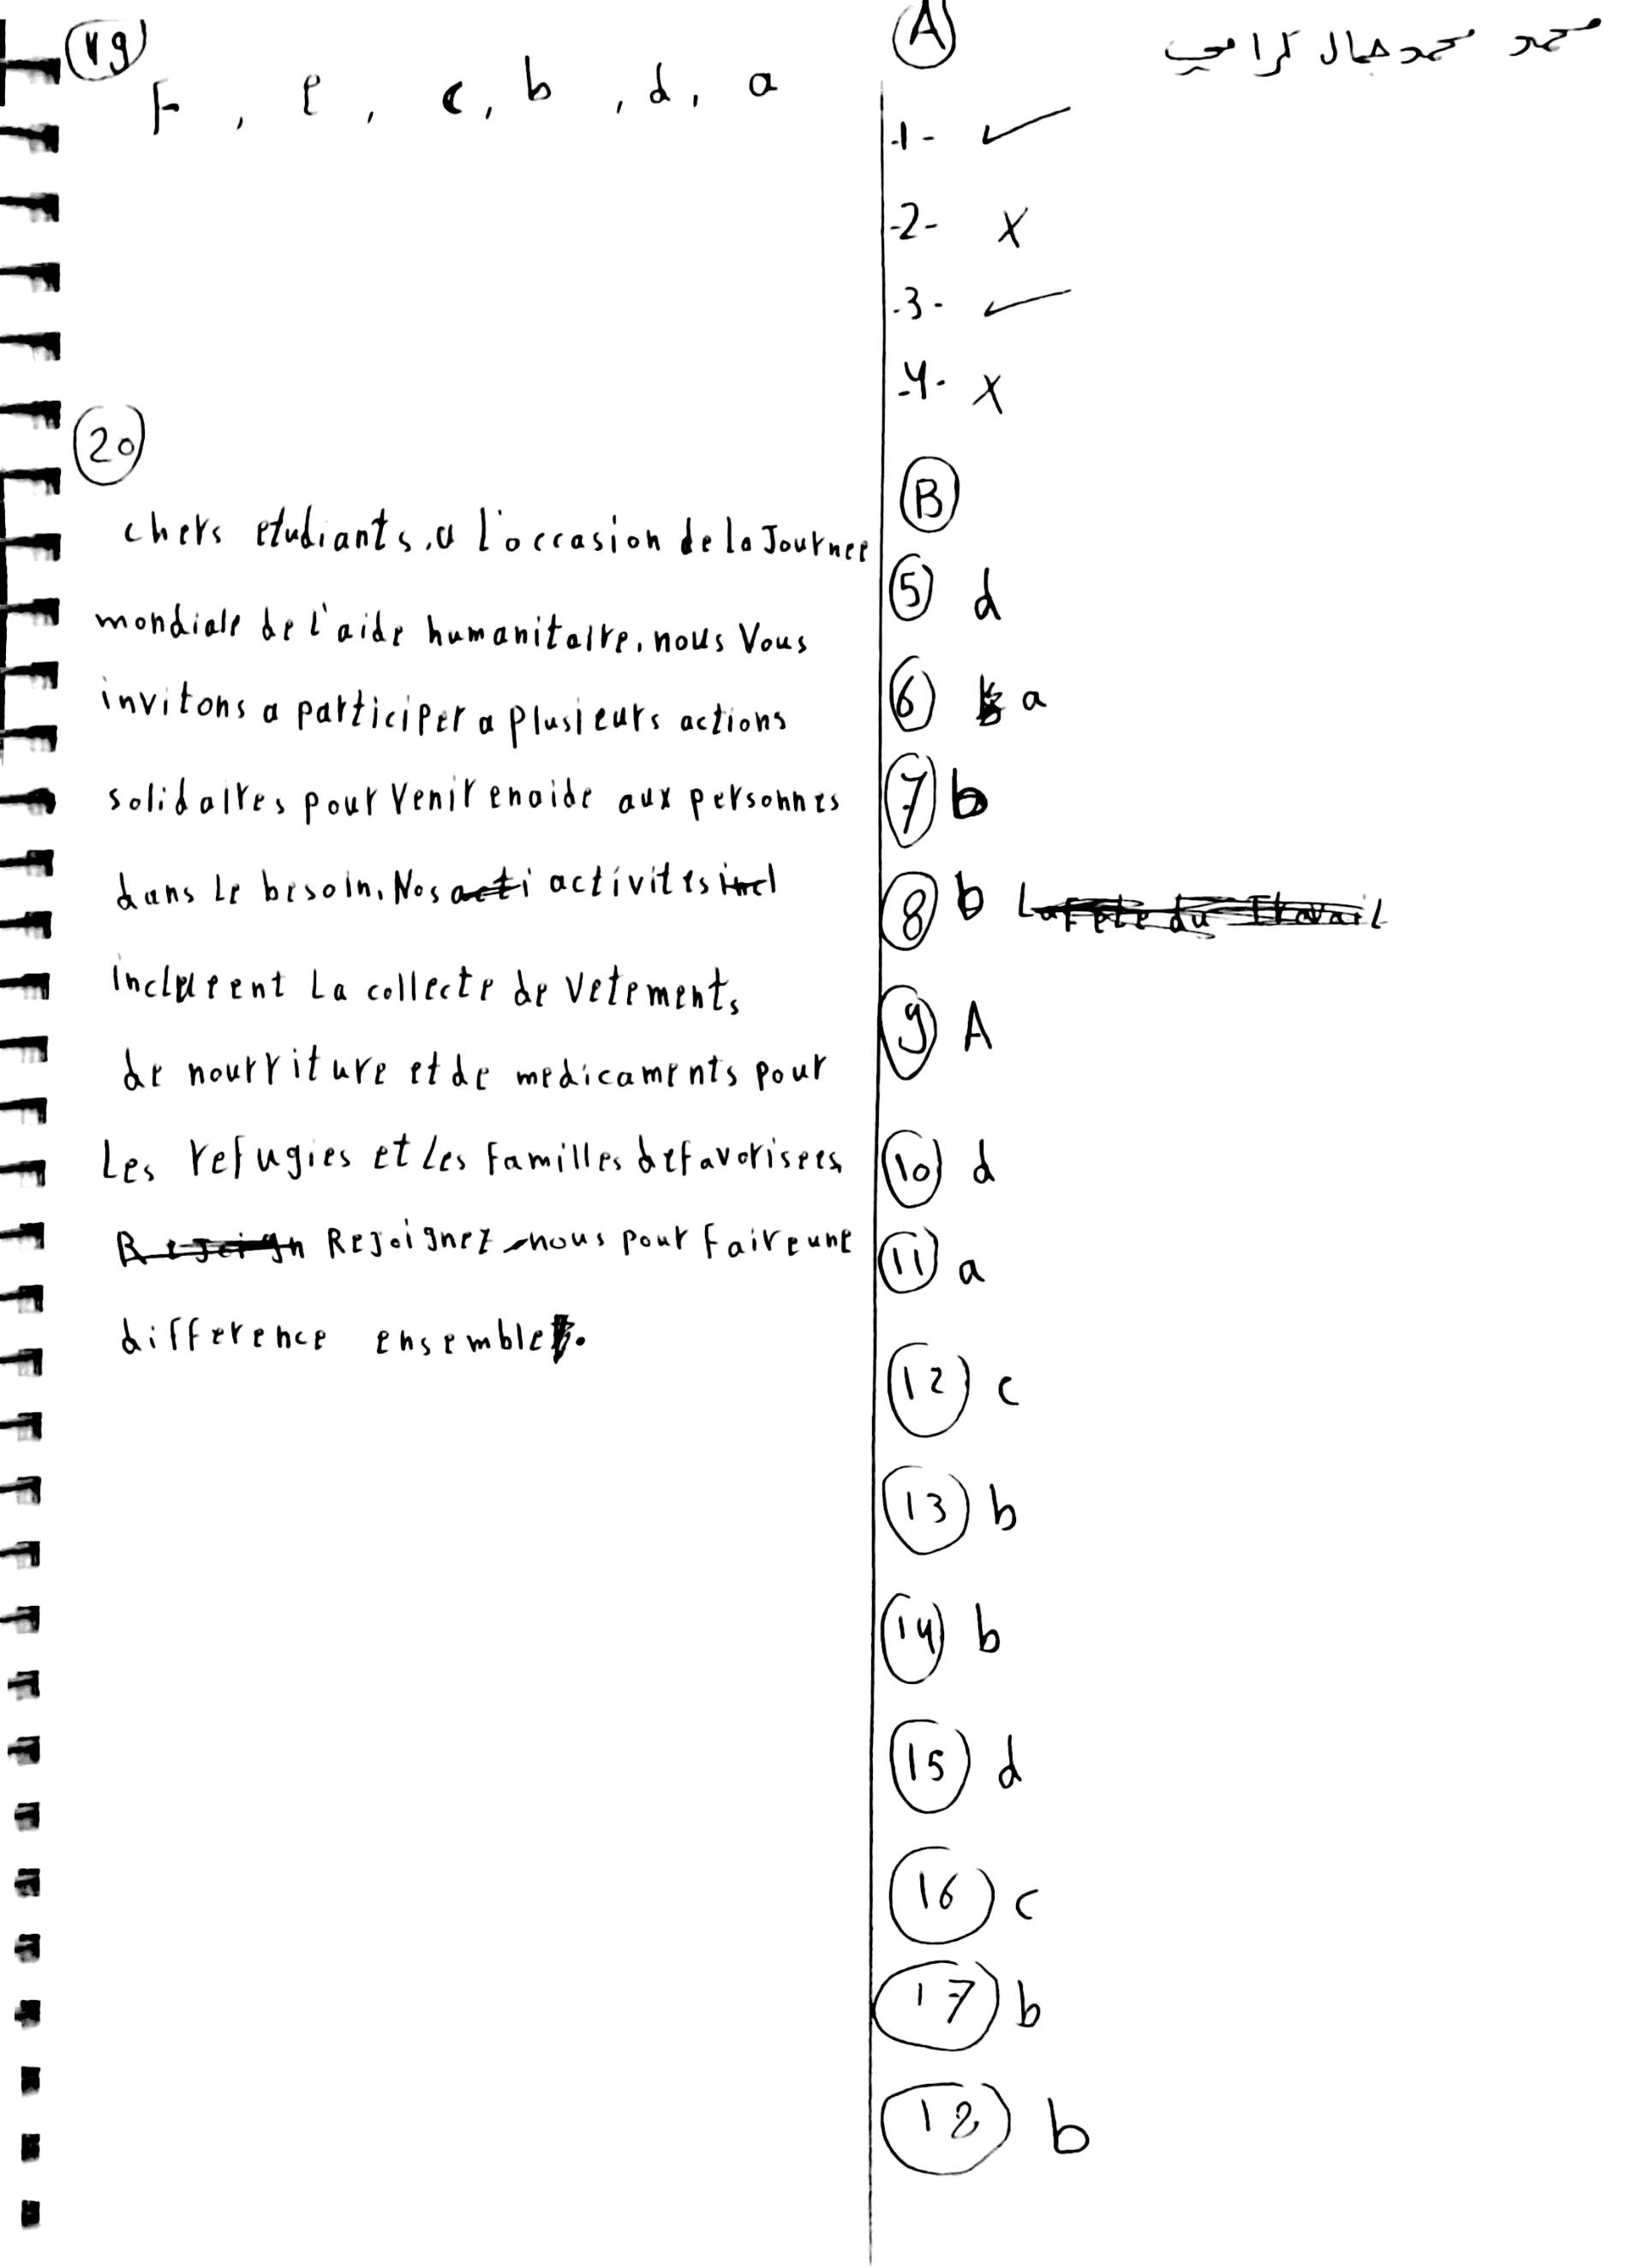 محمد محمد جمال كرامي
A
-1- ✓
-2- X
-3- ✓
-4- X
B
5 d
6 a
7 b
8 b
9 A
10 d
11 a
12 c
13 b
14 b
15 d
16 c
17 b
18 b
19
F, e, c, b, d, a
20
chers etudiants, a l'occasion de la Journee
mondiale de l'aide humanitaire, nous Vous
invitons a participer a plusieurs actions
solidaires pour venir en aide aux personnes
dans Le besoin. Nos activites
incluent La collecte de vetements,
de nourriture et de medicaments pour
Les refugies et Les Familles defavorisees,
Rejoignez-nous pour Faire une
difference ensemble.